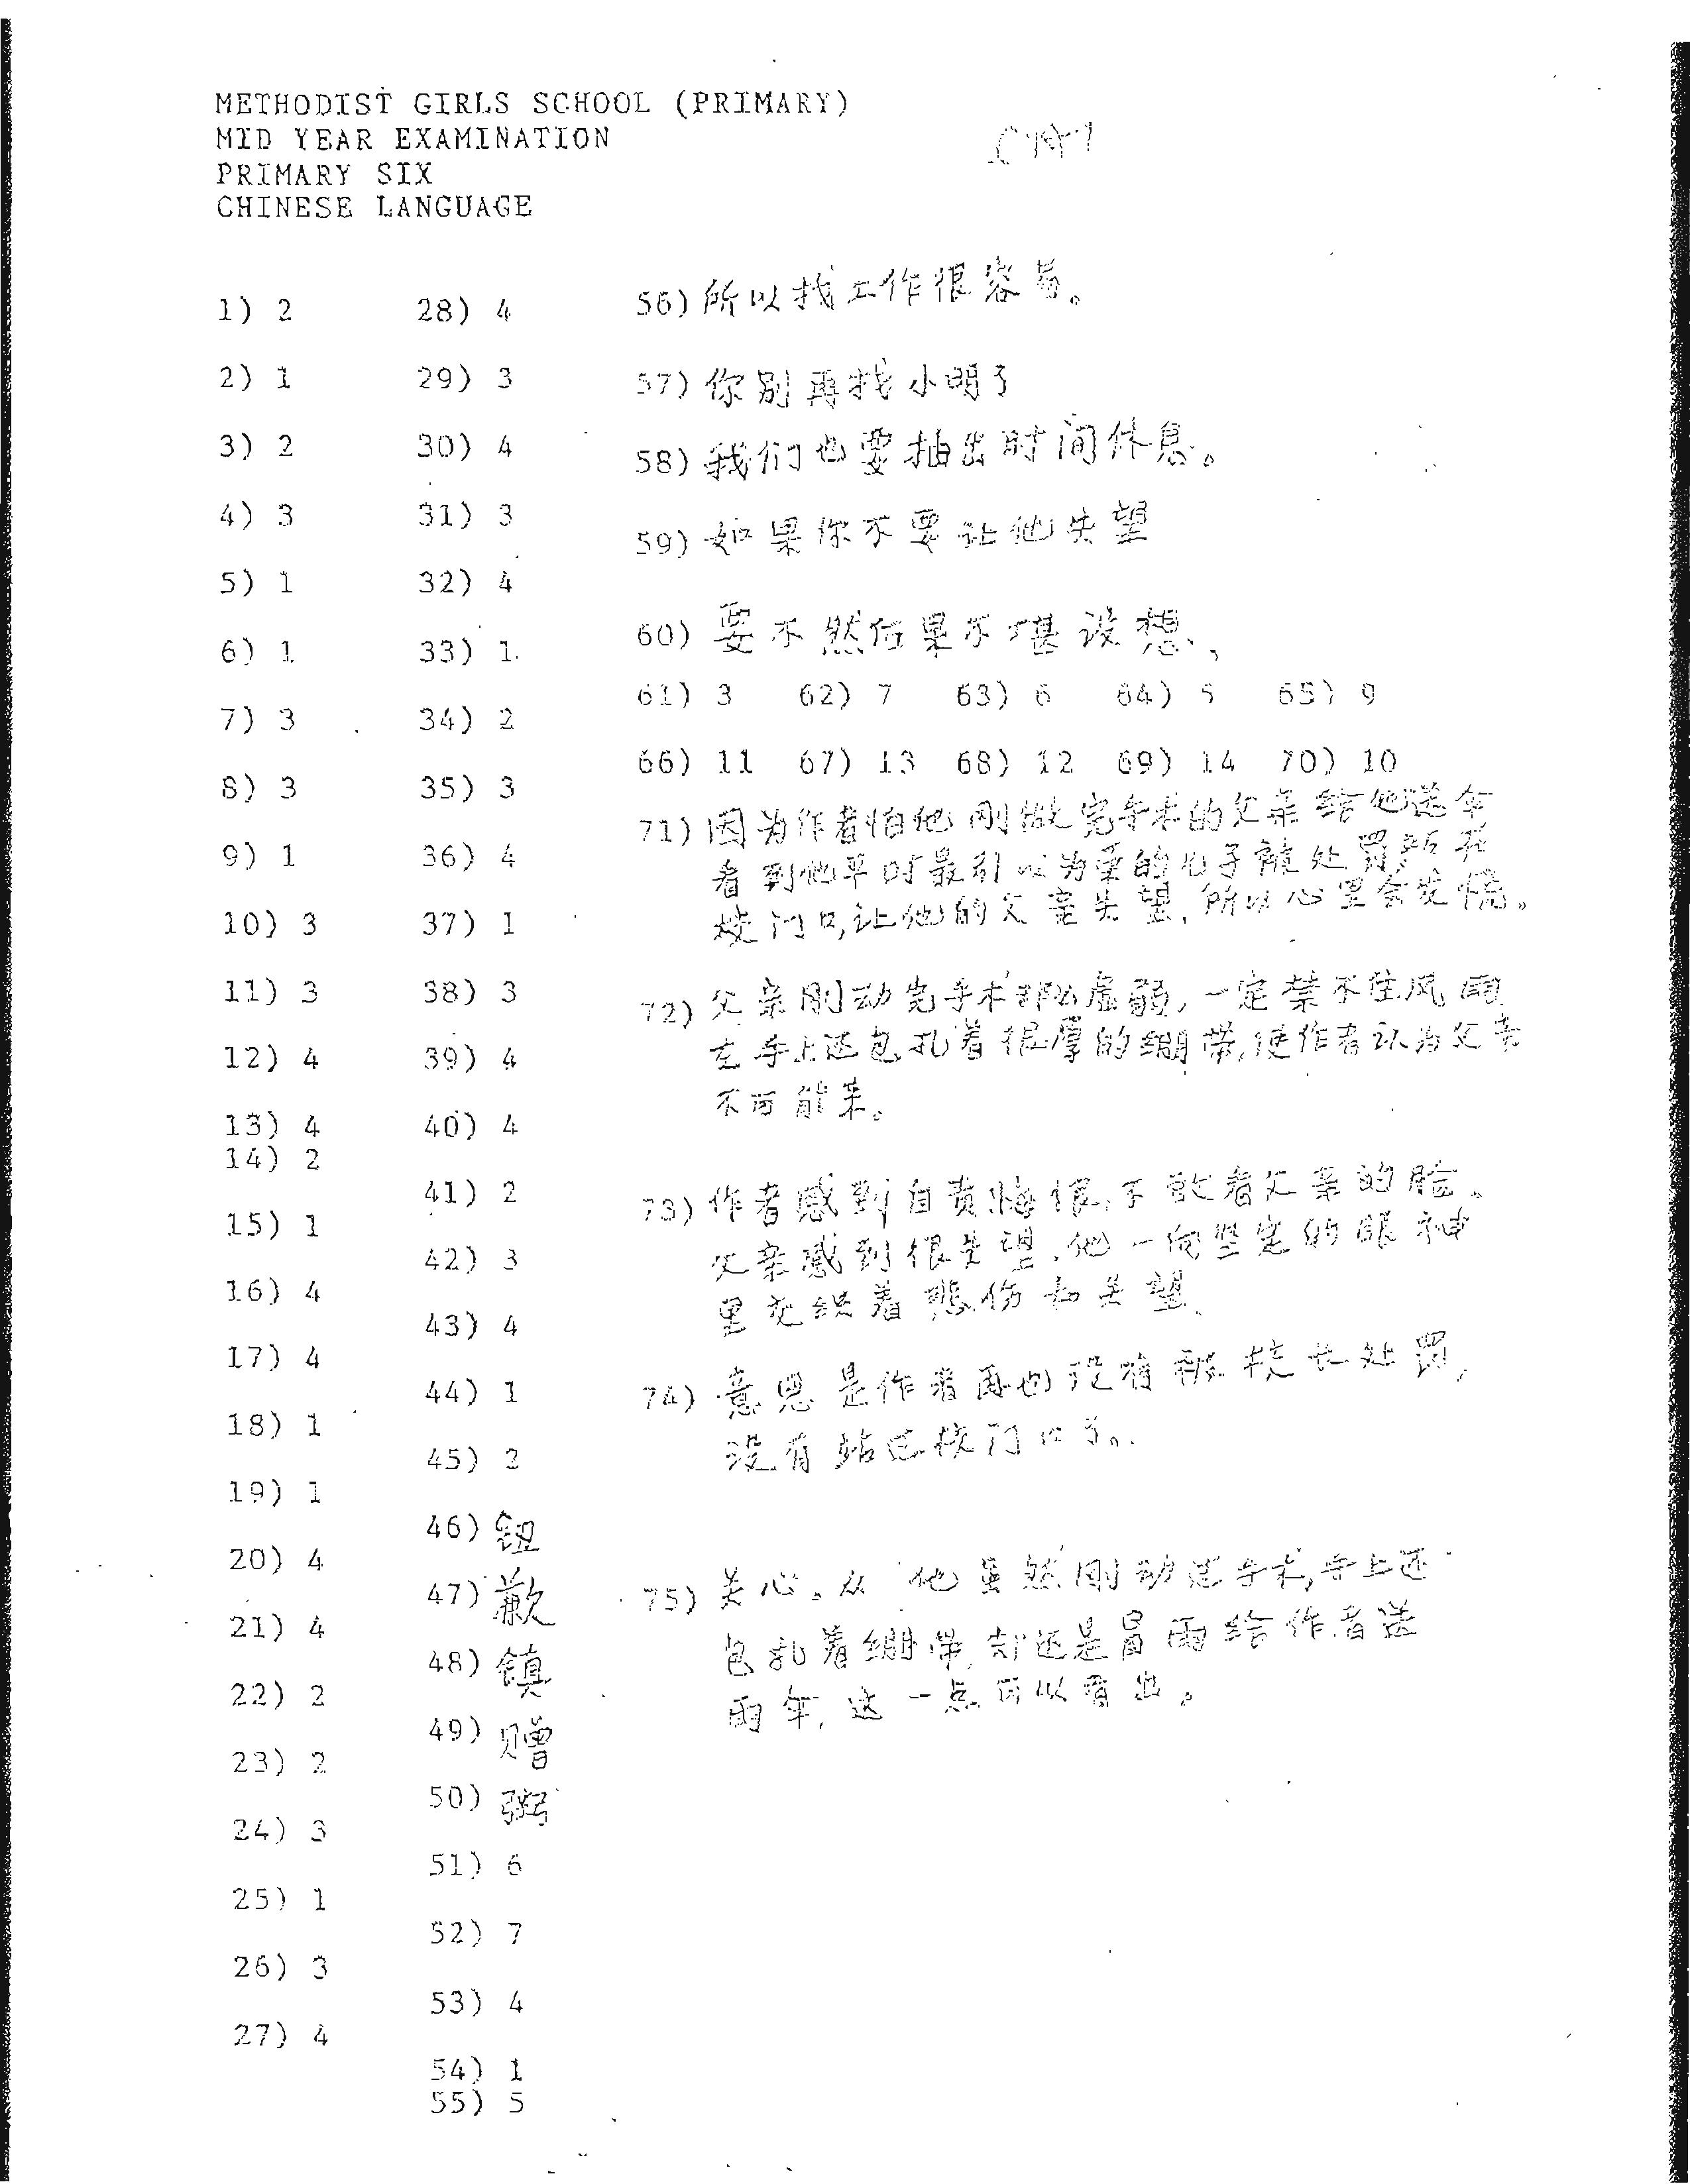 METHODIST GIRLS SCHOOL (PRIMARY)
MID YEAR EXAMINATION
PRIMARY SIX
CHINESE LANGUAGE
1) 2
2) 1
3) 2
4) 3
5) 1
6) 1
7) 3
8) 3
9) 1
10) 3
11) 3
12) 4
13) 4
14) 2
15) 1
16) 4
17) 4
18) 1
19) 1
20) 4
21) 4
22) 2
23) 2
24) 3
25) 1
26) 3
27) 4
28) 4
29) 3
30) 4
31) 3
32) 4
33) 1
34) 2
35) 3
36) 4
37) 1
38) 3
39) 4
40) 4
41) 2
42) 3
43) 4
44) 1
45) 2
46) 钮
47) 歉
48) 镇
49) 赠
50) 粥
51) 6
52) 7
53) 4
54) 1
55) 5
56) 所以找工作很容易。
57) 你别再找小明了
58) 我们也要抽出时间休息。
59) 如果你不要让他失望
60) 要不然后果不堪设想、
61) 3 62) 7 63) 6 64) 5 65) 9
66) 11 67) 13 68) 12 69) 14 70) 10
71) 因为作者怕他刚做完手术的父亲给他送伞
看到他平时最引以为荣的儿子被处罚站在
校门口,让他的父亲失望,所以心里会发慌。
72) 父亲刚动完手术那么虚弱,一定禁不住风雨
左手上还包扎着很厚的绷带,使作者认为父亲
不可能来。
73) 作者感到自责悔恨,不敢看父亲的脸。
父亲感到很失望,他一向坚定的眼神
里交织着悲伤和失望、
74) 意思是作者再也没有被校长处罚,
没有站在校门口了。
75) 关心。从他虽然刚动完手术,手上还
包扎着绷带,却还是冒雨给作者送
雨伞,这一点可以看出。